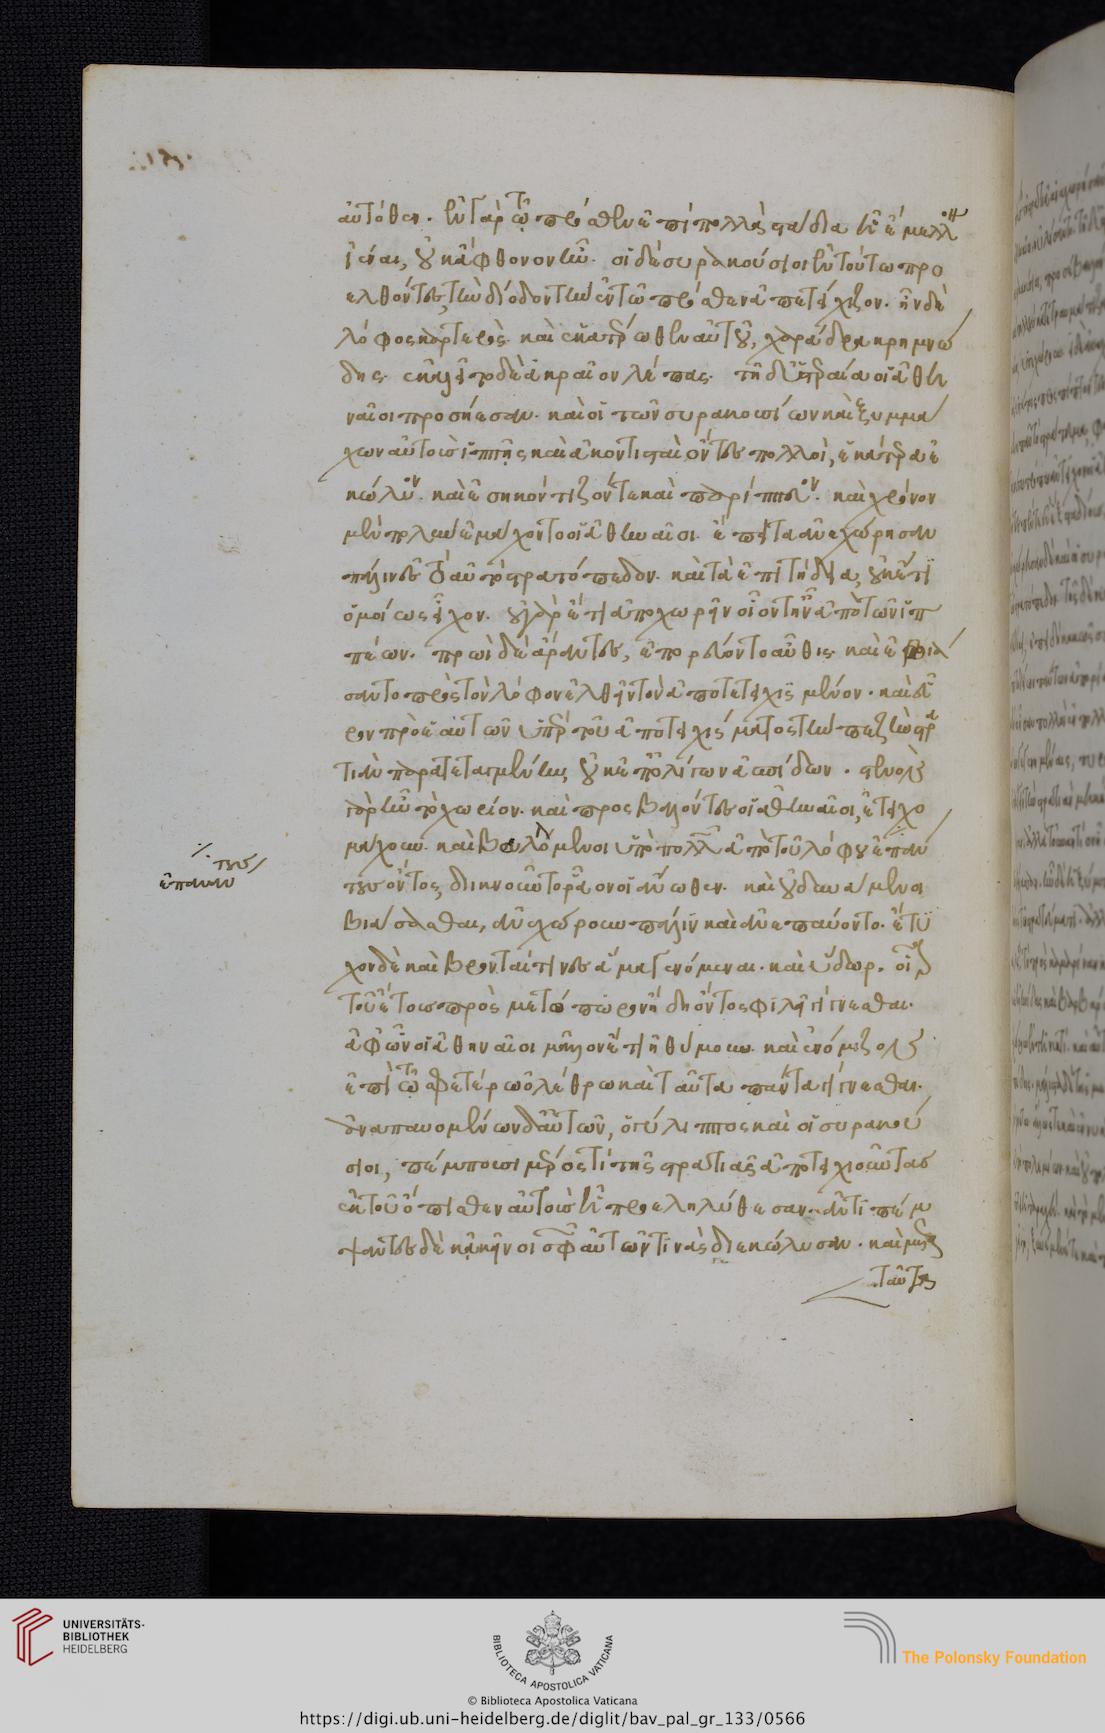 αὐτόθεν. ἐν γὰρ τῷ πρόσθεν ἐπὶ πολλὰ στάδια ᾗ ἔμελλον
ἰέναι, οὐκ ἄφθονον ἦν. οἱ δὲ συρακούσιοι ἐν τούτω προ
ελθόντες, τὴν δίοδον τὴν ἐν τῶ πρόσθεν ἀπετείχιζον. ἦν δὲ
λόφος καρτερὸς. καὶ ἑκατέρωθεν αὐτοῦ, χαράδρα κρημνώ
δης. ἐκαλεῖτο δὲ ἀκραῖον λέπας. τῆ δ' ὑστεραία οἱ ἀθη
ναῖοι προσήεσαν. καὶ οἱ τῶν συρακοσίων καὶ ξυμμά
χων αὐτοὺς ἱππῆς καὶ ἀκοντισταὶ ὄντες πολλοὶ, ἑκατέρωθεν ἐ
κώλυον. καὶ ἐσηκόντιζόν τε καὶ παρίππευον. καὶ χρόνον
μὲν πολὺν ἐμάχοντο οἱ ἀθηναῖοι. ἔπειτα ἀνεχώρησαν
πάλιν ἐς τὸ αὐτὸ στρατόπεδον. καὶ τὰ ἐπιτήδεια, οὐκέτι
ὁμοίως εἶχον. οὐ γὰρ ἔτι ἀποχωρεῖν οἷόν τ' ἦν ἀπὸ τῶν ἱπ
πέων. πρωὶ δὲ ἄραντες, ἐπορεύοντο αὖθις. καὶ ἐβιά
σαντο πρὸς τὸν λόφον ἐλθεῖν τὸν ἀποτετειχισμένον. καὶ εὗ
ρον πρὸ ἑαυτῶν ὑπὲρ τοῦ ἀποτειχίσματος τὴν πεζὴν στρα
τιὰν παρατεταγμένην οὐκ ἐπ' ὀλίγων ἀσπίδων. στενὸν
γὰρ ἦν τὸ χωρίον. καὶ προσβαλόντες οἱ ἀθηναῖοι, ἐτειχο
μάχουν. καὶ βαλλόμενοι ὑπὸ πολλῶν ἀπὸ τοῦ λόφου ἐπάν
τους ὄντος, διικνοῦντο ῥᾷον οἱ ἄνωθεν. καὶ οὐ δυνάμενοι
βιάσασθαι, ἀνεχώρουν πάλιν καὶ ἀνεπαύοντο. ἔτυ
χον δὲ καὶ βρονταί τινες ἅμα γενόμεναι. καὶ ὕδωρ. οἷα
τοῦ ἔτους πρὸς μετόπωρον ἤδη ὄντος φιλεῖ γίγνεσθαι.
ἀφ' ὧν οἱ ἀθηναῖοι μᾶλλον ἔτι ἠθύμουν. καὶ ἐνόμιζον
ἐπὶ τῶ σφετέρω ὀλέθρω καὶ ταῦτα πάντα γίγνεσθαι.
ἀναπαυομένων δ' αὐτῶν, ὁ γύλιππος καὶ οἱ συρακού
σιοι, πέμπουσι μέρος τὶ τῆς στρατιᾶς ἀποτειχιοῦντας
ἐκ τοῦ ὄπισθεν αὐτοὺς ᾗ προεληλύθεσαν. ἀντιπέμ
ψαντες δὲ κἀκεῖνοι σφῶν αὐτῶν τινὰς διεκώλυσαν. καὶ μετὰ
ταῦτα
τους
ἐπάναν
UNIVERSITÄTS-
BIBLIOTHEK
HEIDELBERG
BIBLIOTECA APOSTOLICA VATICANA
The Polonsky Foundation
© Biblioteca Apostolica Vaticana
https://digi.ub.uni-heidelberg.de/diglit/bav_pal_gr_133/0566